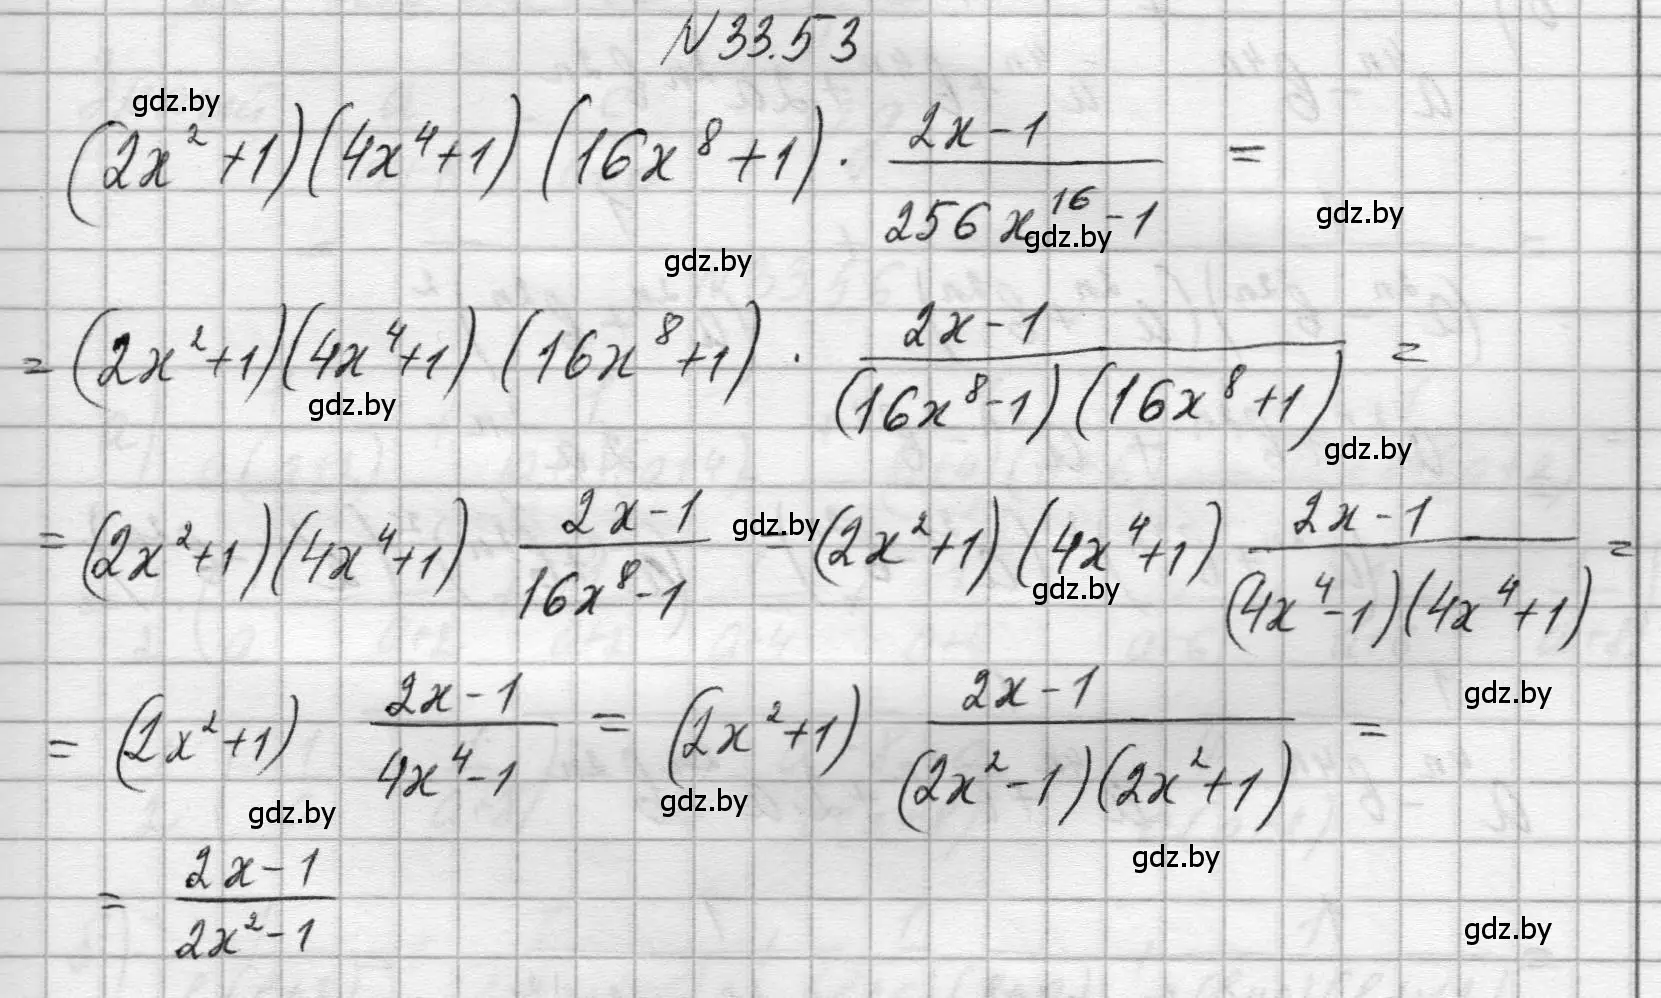 N 33.53
gdz.by
(2x² + 1)(4x⁴ + 1)(16x⁸ + 1) · (2x - 1)/(256x¹⁶ - 1) =
gdz.by
gdz.by
gdz.by
= (2x² + 1)(4x⁴ + 1)(16x⁸ + 1) · (2x - 1)/((16x⁸ - 1)(16x⁸ + 1)) =
gdz.by
gdz.by
= (2x² + 1)(4x⁴ + 1) (2x - 1)/(16x⁸ - 1) = (2x² + 1)(4x⁴ + 1) (2x - 1)/((4x⁴ - 1)(4x⁴ + 1)) =
gdz.by
gdz.by
gdz.by
= (2x² + 1) (2x - 1)/(4x⁴ - 1) = (2x² + 1) (2x - 1)/((2x² - 1)(2x² + 1)) =
gdz.by
gdz.by
gdz.by
= (2x - 1)/(2x² - 1)
gdz.by